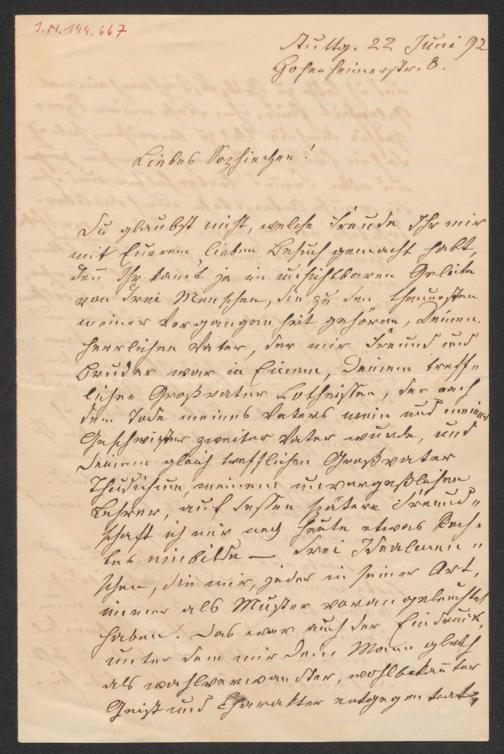 J.N. 144.667
Stuttg. 22 Juni 92
Hohenheimerstr. 8.
Liebes Sophiechen!
Du glaubst nicht, welche Freude Ihr mir
mit Euerem lieben Besuch gemacht habt,
denn Ihr kamt ja in unsichtbarem Geleite
von drei Menschen, die zu den theuersten
meiner Vergangenheit gehören, Deinem
herrlichen Vater, der mir Freund und
Bruder war in Einem, Deinem treff-
lichen Großvater Lotheissen, der nach
dem Tode meines Vaters mein und meiner
Geschwister zweiter Vater wurde, und
Deinem gleich trefflichen Großvater
Thudichum, meinem unvergeßlichen
Lehrer, auf dessen spätere Freund-
schaft ich mir noch heute etwas Rech-
tes einbilde — drei Idealmen-
schen, die mir, jeder in seiner Art,
immer als Muster vorangeleuchtet
haben. Das war auch der Eindruck,
unter dem mir Dein Mann gleich
als wahlverwandter, wohlbekannter
Geist und Charakter entgegen trat,